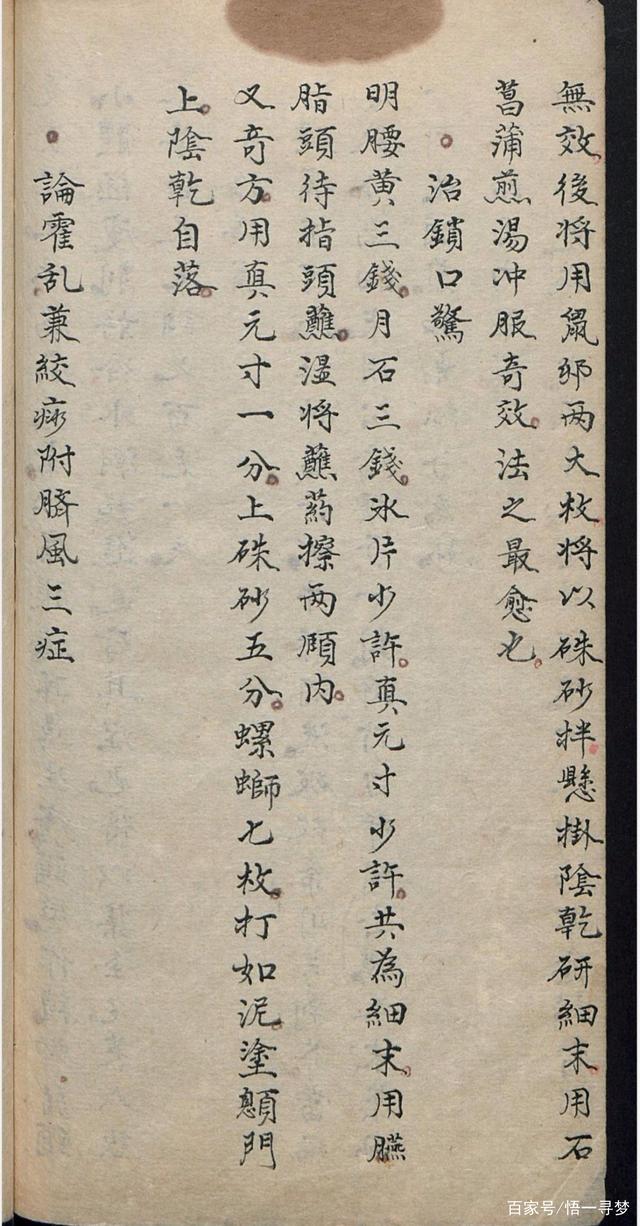 無效後将用鼠卵两大枚将以硃砂拌懸掛陰乾研細末用石
菖蒲煎湯冲服奇效法之最愈也
治鎖口驚
明腰黄三錢月石三錢氷片少許真元寸少許共為細末用臙
脂頭待指頭蘸湿将蘸药擦两頤内
又奇方用真元寸一分上硃砂五分螺螄七枚打如泥塗顖門
上陰乾自落
論霍乱兼絞痧附臍風三症
百家号/悟一寻梦